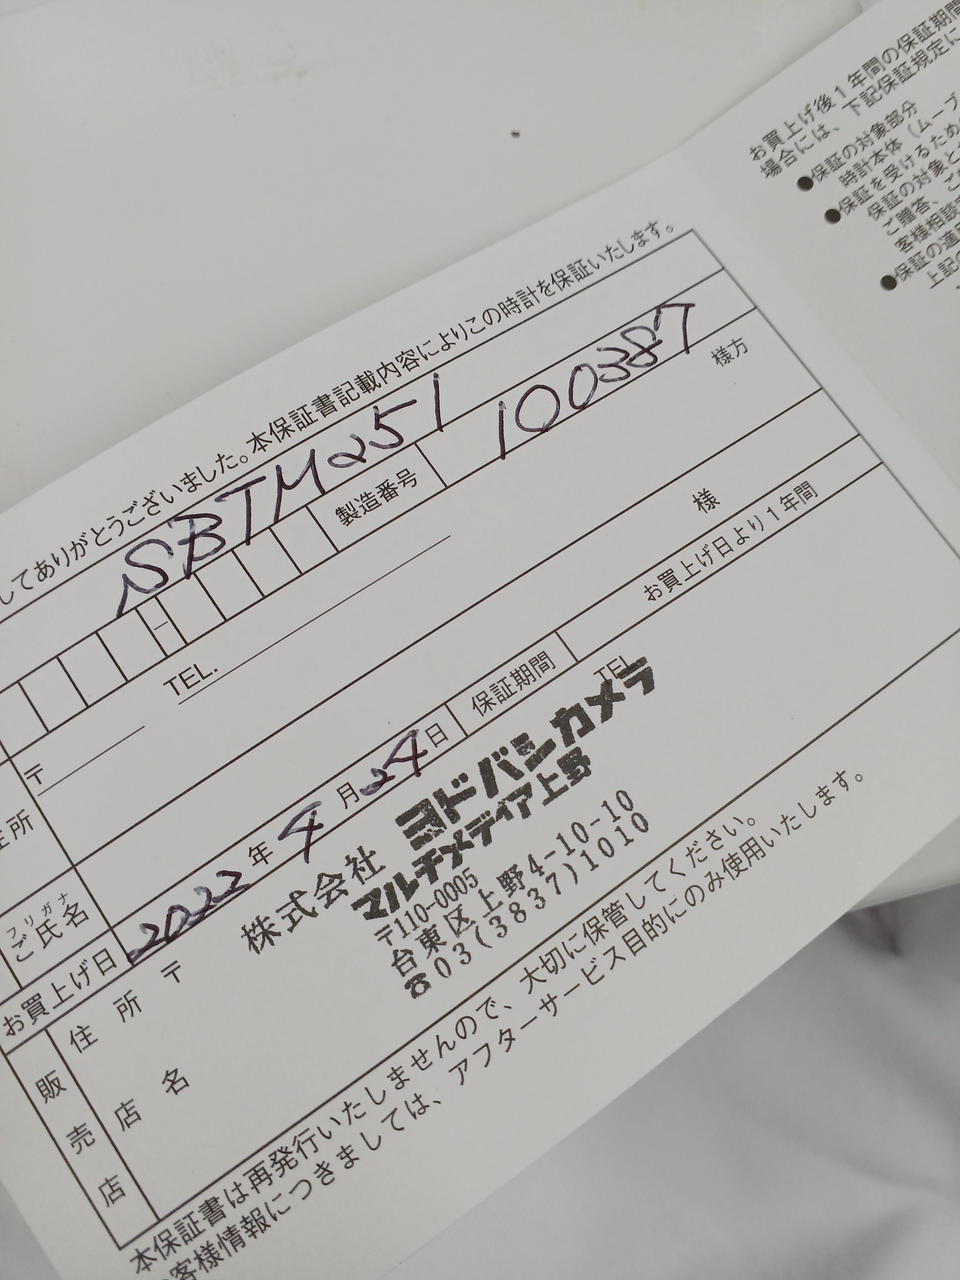 してありがとうございました。本保証書記載内容によりこの時計を保証いたします。
SBTM251
製造番号
100387
様方
TEL.
〒
住所
フリガナ
ご氏名
様
お買上げ日
2022年4月24日
保証期間
お買上げ日より1年間
販売店
住所
〒
TEL
店名
株式会社 ヨドバシカメラ
マルチメディア上野
〒110-0005
台東区上野4-10-10
☎03(3837)1010
本保証書は再発行いたしませんので、大切に保管してください。
客様情報につきましては、アフターサービス目的にのみ使用いたします。
お買上げ後1年間の保証期間
場合には、下記保証規定に
●保証の対象部分
時計本体（ムーブ
●保証を受けるため
保証の対象と
ご贈答、ご
客様相談
●保証の適用
上記の